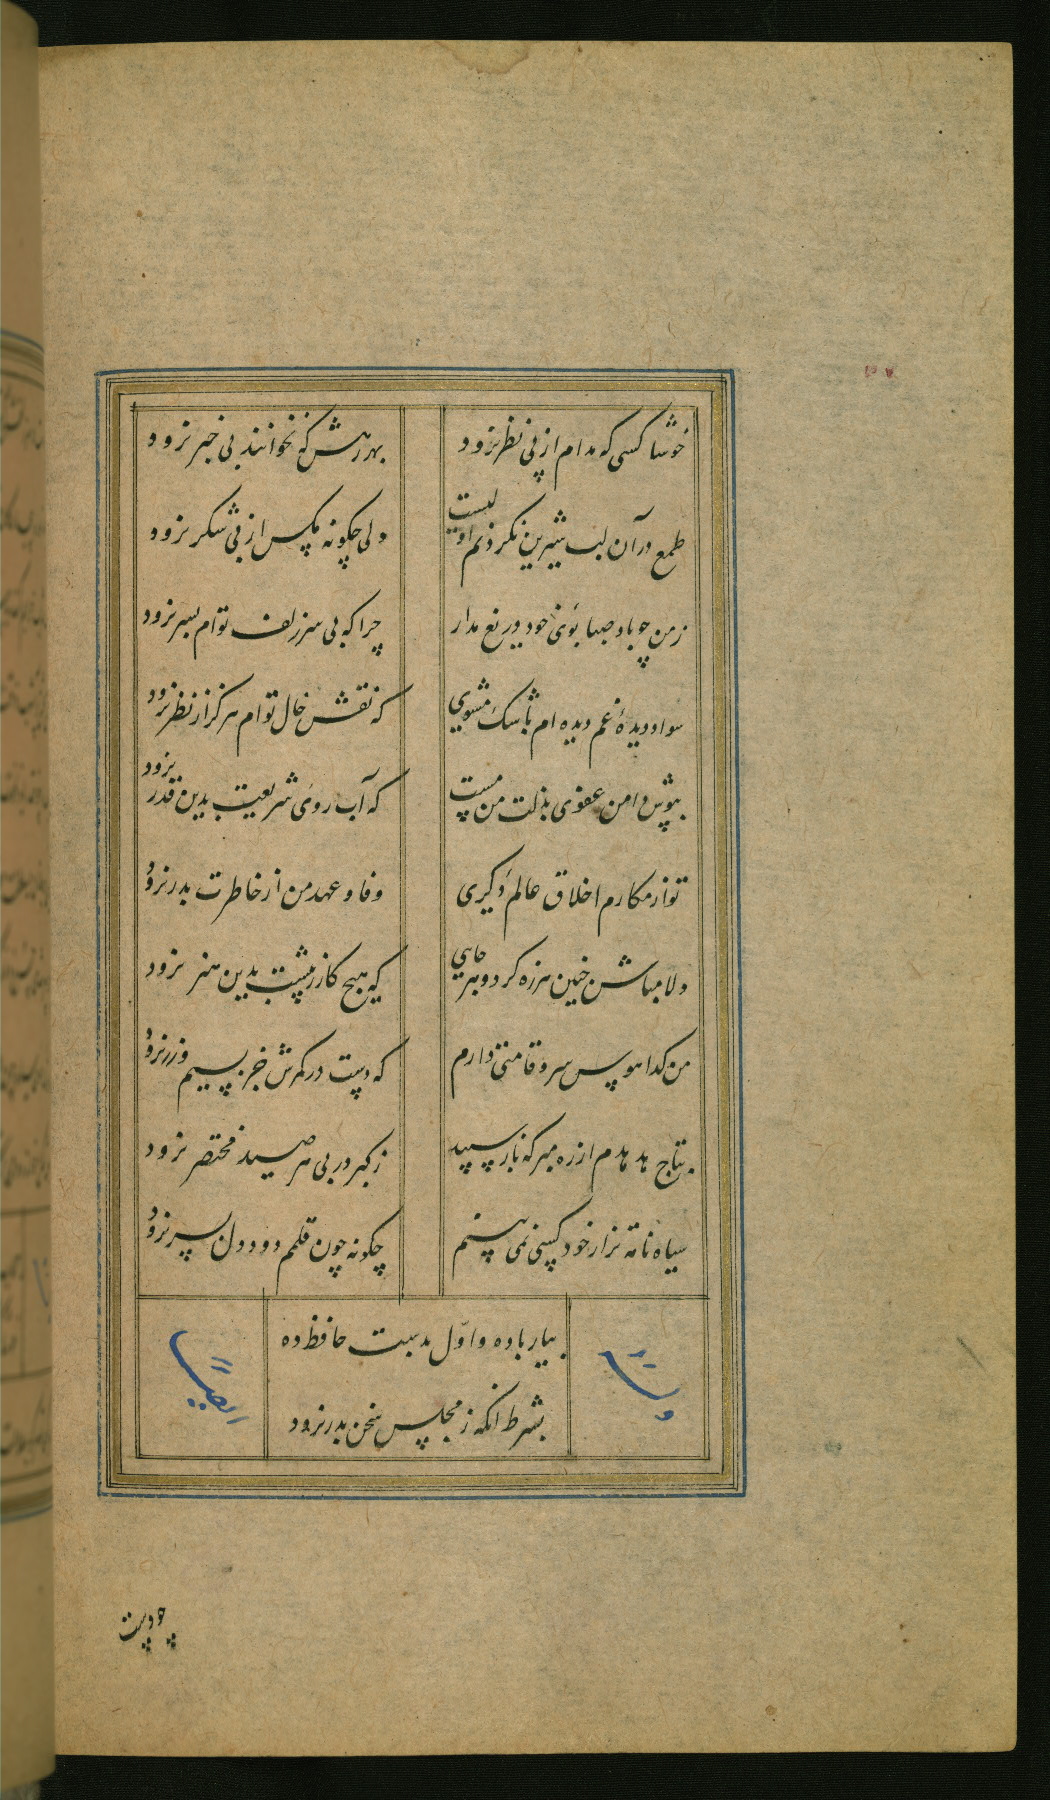 خوشا کسی که مدام از پی نظر نرود
بهر رهش که نخوانند بی خبر نرود
طمع در آن لب شیرین نکردنم اولیست
ولی چگونه مگس از پی شکر نرود
ز من چو باد صبا بوی خود دریغ مدار
چرا که بی سر زلف توام بسر نرود
سواد دیدهٔ غم دیده ام باشک مشوی
که نقش خال توام هرگز از نظر نرود
بپوش دامن عفوی بذلت من مست
که آب روی شریعت بدین قدر نرود
تو از مکارم اخلاق عالم دگری
وفا و عهد من از خاطرت بدر نرود
دلا مباش چنین هرزه کرد و هر جایی
که هیچ کار ز پیشت بدین هنر نرود
من کدا هوس سرو قامتی دارم
که دست در کمرش جز بسیم و زر نرود
بتاج هدهدم از ره مبر که باز سپید
ز کبر در پی هر صید مختصر نرود
سیاه نامه تر از خود کسی نمی بینم
چگونه چون قلمم دود دل بسر نرود
بیار باده و اوّل بدست حافظ ده
بشرط آنکه ز مجلس سخن بدر نرود
وله
ایضاً
چو دست